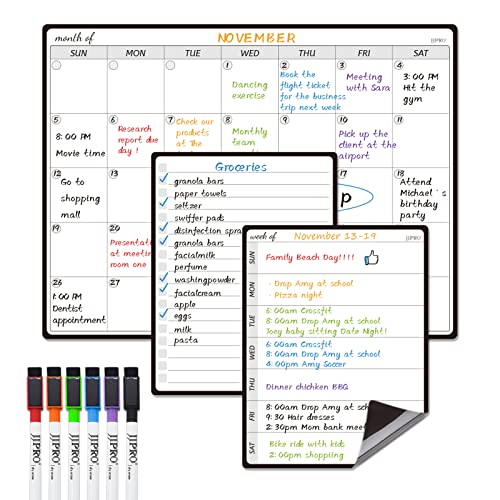 month of NOVEMBER JJPRO
SUN MON TUE WED THU FRI SAT
1
Dancing
exercise
2
Book the
flight ticket
for the business
trip next week
3
Meeting
with Sara
4
3:00 PM
Hit the
gym
5
8:00 PM
Movie time
6
Research
report due
day !
7
Check our
products
at the
8
Monthly
team
9
10
Pick up the
client at the
airport
11
12
Go to
shopping
mall
13
17
p
18
Attend
Michael's
birthday
party
19
20
Presentat
at meeting
room one
26
1:00 PM
Dentist
appointment
27
Groceries
granola bars
paper towels
seltzer
swiffer pads
disinfection spra
granola bars
facialmilk
perfume
washingpowder
facialcream
apple
eggs
milk
pasta
week of November 13-19 JJPRO
SUN
Family Beach Day!!!!
MON
· Drop Amy at school
· Pizza night
TUE
6:00am Crossfit
8:00am Drop Amy at school
Joey baby sitting Date Night!
WED
6:00am Crossfit
8:00am Drop Amy at school
4:00pm Amy Soccer
THU
Dinner chichken BBQ
FRI
8:00am Drop Amy at school
9:30 Hair dresses
2:30pm Mom bank meet
SAT
Bike ride with kids
2:00pm shopping
JJPRO JJPRO JJPRO JJPRO JJPRO JJPRO